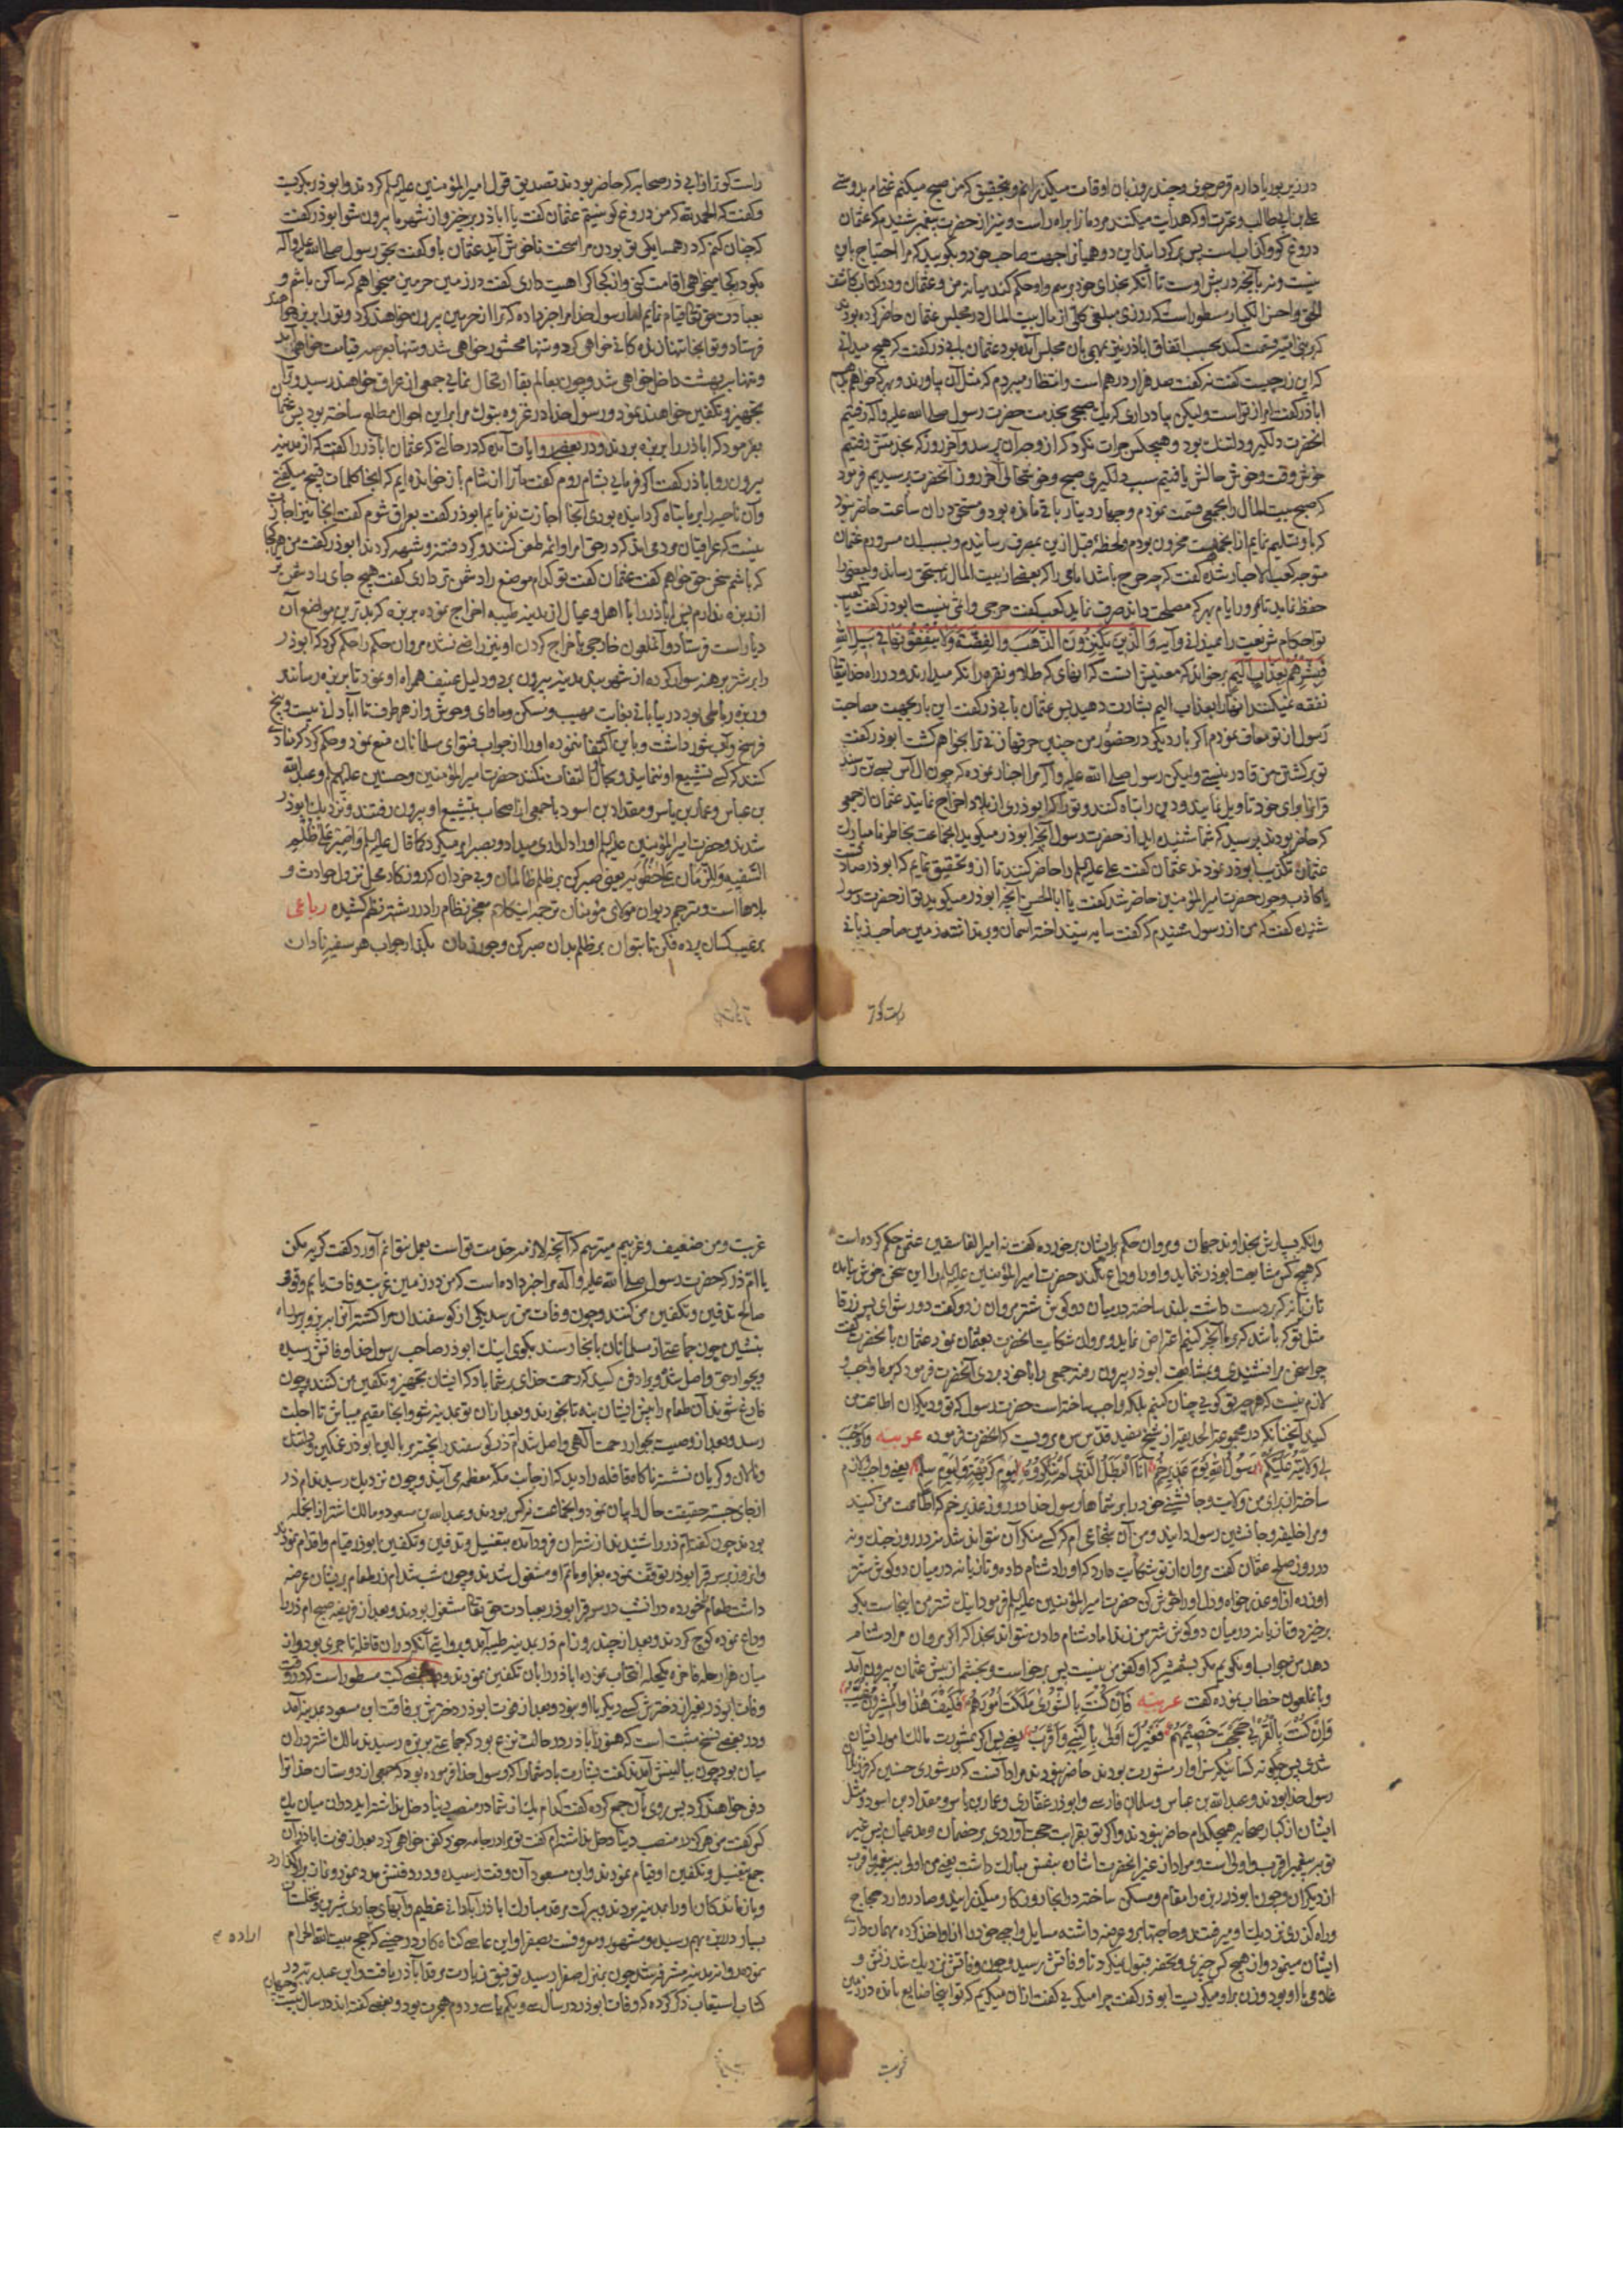 در زیر بوریا دارم قرص جوی و چند روز بان اوقات میکذرانم و بتحقیق که من صبح میکنم غنی ام بدوستی
علی بن ابی طالب و عترت او که هدایت میکنند مردمانرا براه راست و نیز از حضرت پیغمبر شنیدم که عثمان
دروغ کو و کذاب است پس برکردانید این دو همیانرا بجهت صاحب خود و بکویید که مرا احتیاج باین
نیست و نه بآنچه در پیش اوست تا آنکه بخدای خود برسم و او حکم کند میانه من و عثمان و در کتاب کاشف
الحق و احسن الکبار مسطور است که روزی مبلغی کلی از مال بیت المال در مجلس عثمان حاضر کرده بودند
که بنی امیه قسمت کند بحسب اتفاق اباذر نیز بهمان مجلس آمده بود عثمان بابی ذر کفت که هیچ میدانی
که این زر چیست کفت نه کفت صد هزار درهم است و انتظار میبرم که مثل آن بیاورند و بهر که خواهم بدهم
اباذر کفت امر از تو است و لیکن بیاد داری که یک صبحی بخدمت حضرت رسول صلی الله علیه و آله رفتیم
آنحضرت دلکیر و دلتنک بود و هیچکس جرات نکرد که از وجه آن پرسد و آخر روز که بخدمتش رفتیم
خوش وقت و خوش حالش یافتیم سبب دلکیری صبح و خوشحالی آخر روز از آنحضرت پرسیدیم فرمود
که صبح بیت المال را بجمعی قسمت نمودم و چهار دینار باقی مانده بود و مستحق در آن ساعت حاضر نبود
که باو تسلیم نمایم از آنجهت محزون بودم و لحظه قبل ازین بمصرف رسانیدم و بسبب آن مسرورم عثمان
متوجه کعب الاحبار شده کفت که چه حرج باشد امامی را که بعضی از بیت المال بمستحق رساند و بعضی را
حفظ نماید تا بمرور ایام بهر که مصلحت داند صرف نماید کعب کفت حرجی و اثمی نیست ابوذر کفت یا کعب
تو احکام شریعت را میدانی و آیه وَالَّذِینَ یَکْنِزُونَ الذَّهَبَ وَالْفِضَّةَ وَلَا یُنْفِقُونَهَا فِی سَبِیلِ اللَّهِ
فَبَشِّرْهُمْ بِعَذَابٍ أَلِیمٍ برخواند که معنیش اینست که آنهائی که طلا و نقره را نکه میدارند و در راه خدایتعالی
نفقه نمیکنند آنها را بعذاب الیم بشارت دهید پس عثمان بابی ذر کفت این بار بجهت مصاحبت
رسول از تو معاف نمودم اکر بار دیکر در حضور من چنین حرفها زنی ترا بخواهم کشت ابوذر کفت
تو بر کشتن من قادر نیستی و لیکن رسول صلی الله علیه و آله مرا اخبار نموده که چون آل ابی العاص بسی تن رسند
قرآنرا برای خود تاویل نمایند و دین را تباه کنند و ترا که ابوذری از بلاد اخراج نمایند عثمان از جمعی
که حاضر بودند پرسید که شما شنیده اید از حضرت رسول آنچه ابوذر میکوید آنجماعت بخاطر نامبارک
عثمان تکذیب ابوذر نمودند عثمان کفت علی علیه السلم را حاضر کنید تا از او تحقیق نمایم که ابوذر صادق است
یا کاذب و چون حضرت امیر المؤمنین حاضر شد کفت یا ابا الحسن آنچه ابوذر میکوید تو از حضرت رسول
شنیده کفت که من از رسول شنیدم که کفت سایه نینداخته آسمان و برنداشته زمین صاحب زبانی
راست کو تر از ابی ذر صحابه که حاضر بودند تصدیق قول امیر المؤمنین علیه السلم کردند و ابوذر بکریست
و کفت که الحمد لله که من دروغ کو نیستم عثمان کفت یا اباذر برخیز و از شهر ما بیرون شو ابوذر کفت
که چنان کنم که در همسایکی تو بودن مرا سخت ناخوش آید عثمان باو کفت بحق رسول صلی الله علیه و آله
بکو در کجا میخواهی اقامت کنی و از کجا کراهیت داری کفت در زمین حرمین میخواهم که ساکن باشم و
بعبادت حق تعالی قیام نمایم اما رسول خدا مرا خبر داده که ترا از حرمین بیرون خواهند کرد و ترا بربذه خواهند
فرستاد و تو آنجا تنها زنده کانی خواهی کرد و تنها محشور خواهی شد و تنها بعرصه قیامت خواهی آمد
و تنها به بهشت داخل خواهی شد و چون بعالم بقا ارتحال نمائی جمعی از عراق خواهند رسید و بآن
تجهیز و تکفین خواهند نمود و رسول خدا در غزوه تبوک مرا براین احوال مطلع ساخته بود پس عثمان
بفرمود که اباذر را بربذه بردند و در بعضی روایات آمده که در حالتی که عثمان اباذر را کفت که از مدینه
بیرون رو اباذر کفت اکر فرمائی بشام روم کفت ما ترا از شام باز خوانده ایم که آنجا کلمات قبیح میکفتی
و آن ناحیه را بر ما تباه کردانیده بودی آنجا اجازت نفرمایم ابوذر کفت بعراق شوم کفت آنجا نیز اجازت
نیست که عراقیان مردمی اند که در حق امرا و ائمه طعن کنند و کرد فتنه و شبهه کردند ابوذر کفت من هر کجا
که باشم سخن حق خواهم کفت عثمان کفت تو کدام موضع را دشمن تر داری کفت هیچ جای را دشمن تر
از ربذه ندارم پس اباذر را با اهل و عیال از مدینه طیبه اخراج نموده بربذه که بدترین مواضع آن
دیار است فرستاد و آنملعون خارجی باخراج کردن او نیز راضی نشده مروان حکم را حکم کرد که ابوذر
را بر شتر برهنه سوار کرده از شهر مدینه بیرون برد و دلیل عنیف همراه او نمود تا بربذه رسانند
و ربذه رباطی بود در بیابانی بغایت مهیب و مسکن و ماوای وحوش و از هر طرف تا آبادانی بیست و پنج
فرسخ و آب شور داشت و باین اکتفا ننموده او را از جواب فتوای مسلمانان منع نمود و حکم کرد که منادی
کنند که کسی تشییع او ننماید و بحال او التفات نکند حضرت امیر المؤمنین و حسنین علیهم السلم و عبد الله
بن عباس و عمار بن یاسر و مقداد بن اسود با جمعی از اصحاب بتشییع او بیرون رفتند و نزدیک ابوذر
شدند و حضرت امیر المؤمنین علیه السلم او را دلداری میداد و بصبر امر میکرد کما قال علیه السلم واصبر علی ظلم
السَّفِیهِ وَلِلزَّمَانِ عَلَی خُطُوبِهِ یعنی صبر کن بر ظلم ظالمان و بی خردان که روزکار محل نزول حوادث و
بلاها است و مترجم دیوان مولای مؤمنان ترجمه این کلام معجز نظام را در رشته نظم کشیده رباعی
بر عیب کسان پرده فکن تا بتوان بر ظلم بدان صبر کن و جور زمان بکذار جواب هر سفیه نادان
وانکه بسپارش بخداوند جهان و مروان حکم بایشان برخورده کفت نه امیر الفاسقین عثمان حکم کرده است
که هیچ کس مشایعت ابوذر ننماید و او را وداع نکند حضرت امیر المؤمنین علیه السلم را این سخن خوش نیامده
تازیانه که در دست داشت بلند ساخته در میان دو کوش شتر مروان زد و کفت دور شو ای پسر زرقا
مثل تو که باشد که بر ما بآنچه کنیم اعتراض نماید و مروان شکایت آنحضرت بعثمان نمود عثمان بآنحضرت کفت
چرا سخن مرا نشنیدی و بمشایعت ابوذر بیرون رفته جمعی را با خود بردی آنحضرت فرمود که بر ما واجب و
لازم نیست که هر چیز تو کوئی چنان کنیم بلکه واجب ساخته است حضرت رسول که تو و دیکران اطاعت من
کنید چنانکه در مجموعه الحدیقه از شیخ مفید قدس سره مرویست که آنحضرت فرموده عربیه وَأَوْجَبَ
لِی وَلَایَتَهُ عَلَیْکُمْ رَسُولُ اللَّهِ یَوْمَ غَدِیرِ خُمٍّ أَنَا الْبَطَلُ الَّذِی لَمْ تُنْکِرُوهُ لِیَوْمِ کَرِیهَةٍ وَلِیَوْمِ سِلْمٍ یعنی واجب و لازم
ساخته از برای من ولایت و جانشینی خود را بر شماها رسول خدا در روز غدیر خم که اطاعت من کنید
و مرا خلیفه و جانشین رسول دانید و من آن شجاعی ام که کسی منکر آن نتواند شد نه در روز جنک و نه
در روز صلح عثمان کفت مروان از تو شکایت دارد که او را دشنام داده و تازیانه در میان دو کوش شتر
او زده از او عذر خواه و دل او را خوش کن حضرت امیر المؤمنین علیه السلم فرمود اینک شتر من اینجاست بکو
برخیزد و تازیانه در میان دو کوش شتر من زند اما دشنام دادن نتواند بخدا که اکر مروان مرا دشنام
دهد من جواب او نکویم مکر بشمشیر که او کفو من نیست پس برخواست و بخشم از پیش عثمان بیرون آمد
و بآنملعون خطاب نموده کفت عربیه فَإِنْ کُنْتَ بِالشُّورَی مَلَکْتَ أُمُورَهُمْ فَکَیْفَ هَذَا وَالْمُشِیرُونَ غُیَّبٌ
وَإِنْ کُنْتَ بِالْقُرْبَی حَجَجْتَ خَصِیمَهُمْ فَغَیْرُکَ أَوْلَی بِالنَّبِیِّ وَأَقْرَبُ یعنی پس اکر بمشورت مالک امور ایشان
شدی پس چکونه کسانیکه سزاوار مشورت بودند حاضر نبودند مراد آنست که در شوری حسنین که فرزندان
رسول خدا بودند و عبد الله بن عباس و سلمان فارسی و ابوذر غفاری و عمار بن یاسر و مقداد بن اسود و مثل
ایشان از کبار صحابه هیچکدام حاضر نبودند و اکر تو بقرابت حجت آوردی بر خصمان و مدعیان پس غیر
تو به پیغمبر اقرب و اولی است و مراد از غیر آنحضرت اشاره بنفس مبارک داشت یعنی من اولی به پیغمبر و اقرب
از دیکران و چون ابوذر ربذه را مقام و مسکن ساخته در آنجا روزکار میکذرانید و صادر و وارد حجاج
و راه کذری نزدیک او میرفتند و حاجتها برو عرضه داشته مسایل واجبی خود را از او اخذ کرده مهمان داری
ایشان مینمود و از هیچ کس چیزی و محقر قبول نمیکرد تا وفاتش رسید و چون وفاتش نزدیک شد زنش و
غلامی با او بود و زن بر او میکریست ابوذر کفت چرا میکریی کفت از آن میکریم که تو اینجا ضایع مانده در زمین
غربت و من ضعیف و غریبم میترسم که آنچه لازمه خدمت تو است بعمل نتوانم آورد کفت کریه مکن
یا ام ذر که حضرت رسول صلی الله علیه و آله مرا خبر داده است که من در زمین غربت وفات یابم و قومی
صالح تدفین و تکفین من کنند و چون وفات من رسد یکی از کوسفندان مرا کشته آنرا بریز و بر سر راه
بنشین چون جماعتی از مسلمانان بآنجا رسند بکوی اینک ابوذر صاحب رسول خدا وفاتش رسیده
و بجوار حق واصل شد و یرا دفن کنید که رحمت خدای بر شما باد که ایشان تجهیز و تکفین من کنند و چون
فارغ شوند آن طعام را پیش ایشان بنه تا بخورند و بعد از آن تو بمدینه شو و آنجا مقیم میباش تا اجلت
رسد و بعد از وصیت بجوار رحمت آلهی واصل شد ام ذر کوسفند را پخته بر بالین ابوذر غمکین و دلتنک
و نالان و کریان نشسته ناکاه قافله را دید که از جانب مکه معظمه می آیند و چون نزدیک رسیدند ام ذر
از جای جسته حقیقت حال را بیان نمود و آنجماعت نرکس بودند و عبد الله بن مسعود و مالک اشتر از آنجمله
بودند چون کفته ام ذر را شنیدند از شتران فرود آمده بتغسیل و تدفین و تکفین ابوذر قیام و اقدام نمودند
و آنروز بر سر قبر ابوذر توقف نموده بعزا و ماتم او مشغول شدند و چون شب شد ام ذر طعام بر ایشان عرضه
داشت طعام خورده در آنشب در سر قبر ابوذر بعبادت حق تعالی مشغول بودند و بعد از فریضه صبح ام ذر را
وداع نموده کوچ کردند و بعد از چند روز ام ذر بمدینه طیبه آمد و بروایتی آنکه در آن قافله تاجری بود و از
میان هزار حله فاخره یکحله انتخاب نموده اباذر را بآن تکفین نمودند و در بعضی کتب مسطور است که در وقت
وفات ابوذر بغیر از دخترش کسی دیکر با او نبود و بعد از فوت ابوذر دخترش برفاقت ابن مسعود بمدینه آمد
و در بعضی نسخ مثبت است که هنوز اباذر در حالت نزع بود که جماعتی بربذه رسیدند مالک اشتر در آن
میان بود چون ببالینش آمدند کفت بشارت باد شما را که رسول خدا فرموده بود که جمعی از دوستان خدا ترا
دفن خواهند کرد پس روی بآن جمع کرده کفت کدام یک از شما در منصب دنیا دخل نداشته اید در آن میان یک
کس کفت من هرکز در منصب دنیا دخل نداشته ام کفت تو مرا در جامه خود کفن خواهی کرد بعد از فوت اباذر آن
جمع بتغسیل و تکفین او قیام نمودند و ابن مسعود آن وقت رسیده و در دفنش مدد نمود و نماز بر او کذارد
و بازماندکان او را بمدینه بردند و ببرکت مرقد مبارک اباذر آبادانی عظیم و آبهای جاری شیرین و نخلستان
بسیار در ربذه بهم رسید و مشهور و معروفست بصفرا و این عاصی کناه کار در حینی که بحج بیت الله الحرام
اراده
نموده و از مدینه مشرفه شد چون بمنزل صفرا رسید توفیق زیارت مرقد اباذر یافت و ابن عبد ربه در
کتاب استیعاب ذکر کرده که وفات ابوذر در سال سی و یکم یا سی و دوم هجرت بود و بعضی کفته اند در سال بیست
و چهارم
غربت